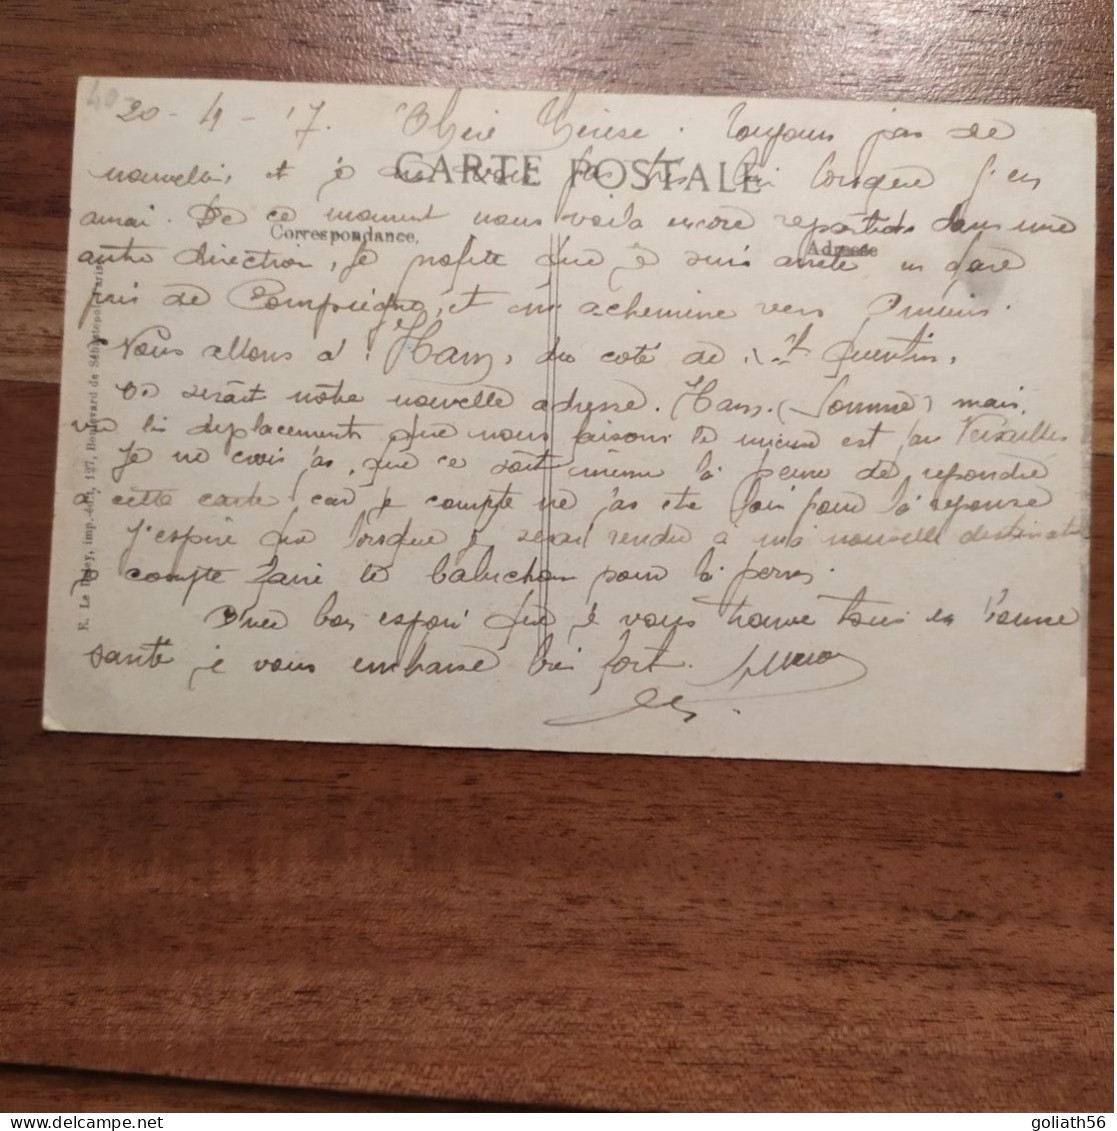 40
20 - 4 - 17. Chère Thérèse. Toujours pas de
CARTE POSTALE
nouvelles, et je ne sais pas très bien lorsque j'en
aurai. De ce moment nous voila encore repartis dans une
Correspondance.
Adresse
autre direction, Je profite que je suis arrêté en gare
près de Compiègne, et on m'achemine vers Amiens.
Nous allons à Ham, du coté de St Quentin,
se serait notre nouvelle adresse. Ham. (Somme) mais,
vu les déplacements que nous faisons le mieux est par Versailles
Je ne crois pas, que ce soit même la peine de repondre
cette carte car je compte ne pas être loin pour la reponse
J'espère que lorsque je serai rendu à ma nouvelle destination
je compte faire le pour la perme.
Avec bon espoir que je vous trouve tous en bonne
santé je vous embrasse bien fort.
E. Le Deley, imp.-édit., 127, Boulevard de Sébastopol, Paris
goliath56